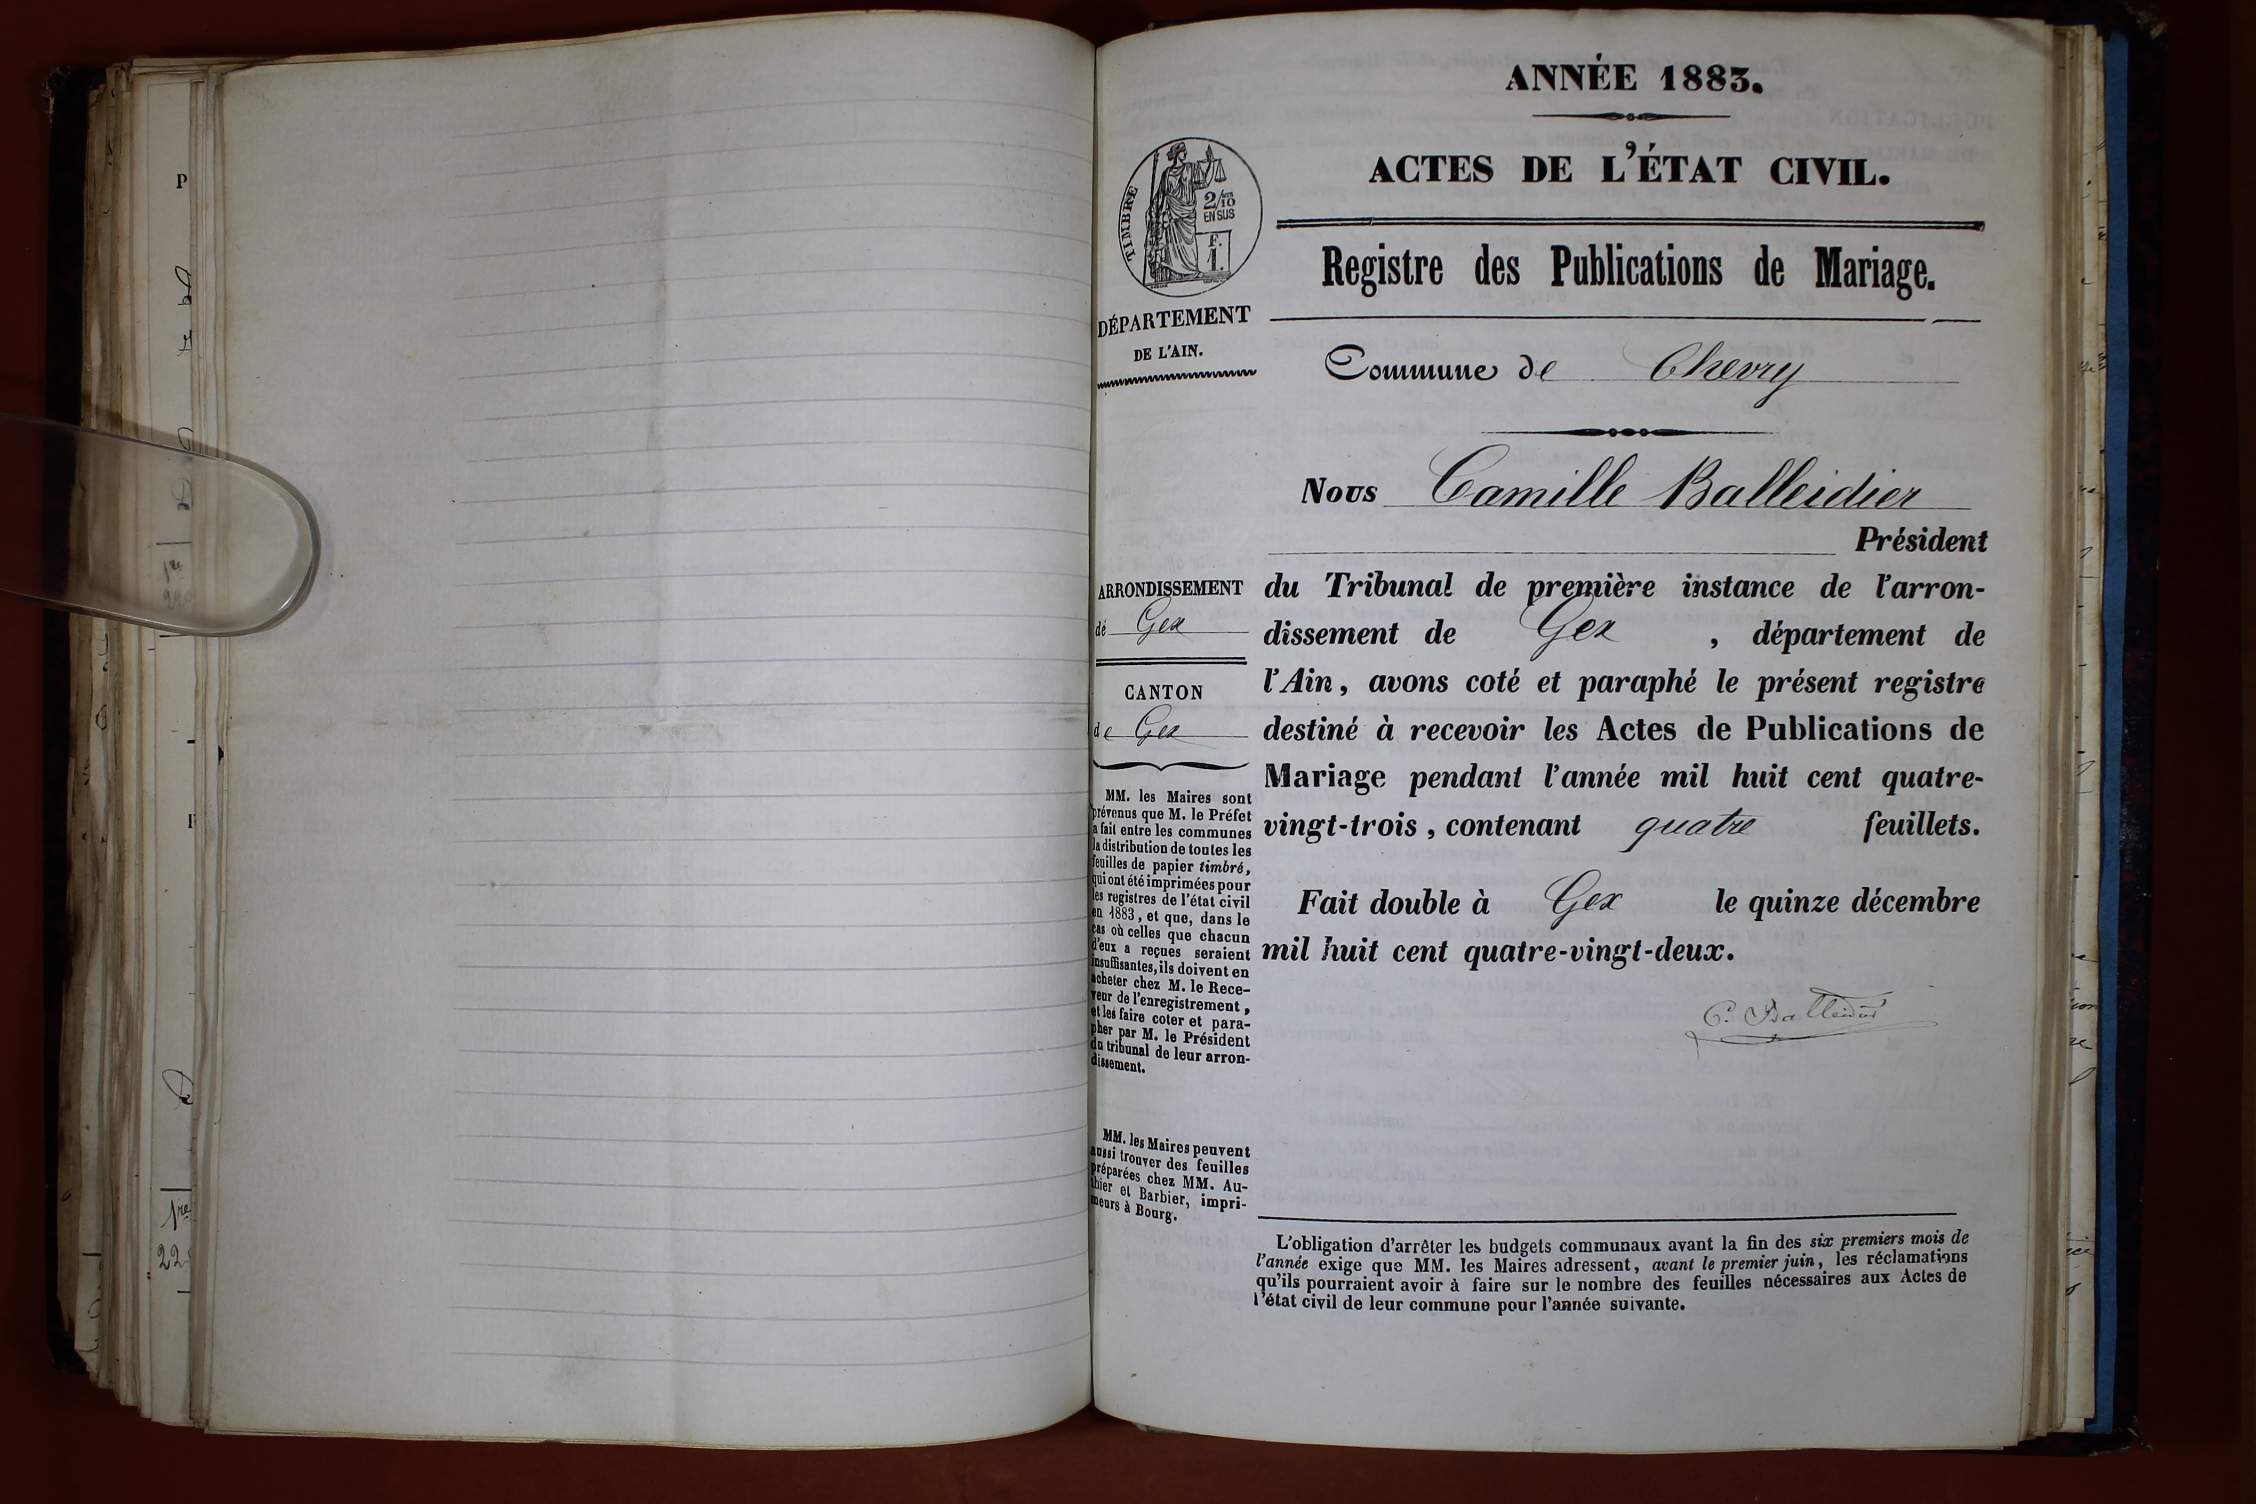 ANNÉE 1883.
ACTES DE L'ÉTAT CIVIL.
TIMBRE
2/10
EN SUS
F.
1.
Registre des Publications de Mariage.
DÉPARTEMENT
DE L'AIN.
Commune de Chevry
Nous Camille Balleidier
Président
ARRONDISSEMENT
de Gex
CANTON
de Gex
du Tribunal de première instance de l'arron-
dissement de Gex , département de
l'Ain, avons coté et paraphé le présent registre
destiné à recevoir les Actes de Publications de
Mariage pendant l'année mil huit cent quatre-
vingt-trois, contenant quatre feuillets.
Fait double à Gex le quinze décembre
mil huit cent quatre-vingt-deux.
C. Balleidier
MM. les Maires sont
prévenus que M. le Préfet
a fait entre les communes
la distribution de toutes les
feuilles de papier timbré,
qui ont été imprimées pour
les registres de l'état civil
en 1883, et que, dans le
cas où celles que chacun
d'eux a reçues seraient
insuffisantes, ils doivent en
acheter chez M. le Rece-
veur de l'enregistrement,
et les faire coter et para-
pher par M. le Président
du tribunal de leur arron-
dissement.
MM. les Maires peuvent
aussi trouver des feuilles
préparées chez MM. Au-
thier et Barbier, impri-
meurs à Bourg.
L'obligation d'arrêter les budgets communaux avant la fin des six premiers mois de
l'année exige que MM. les Maires adressent, avant le premier juin, les réclamations
qu'ils pourraient avoir à faire sur le nombre des feuilles nécessaires aux Actes de
l'état civil de leur commune pour l'année suivante.